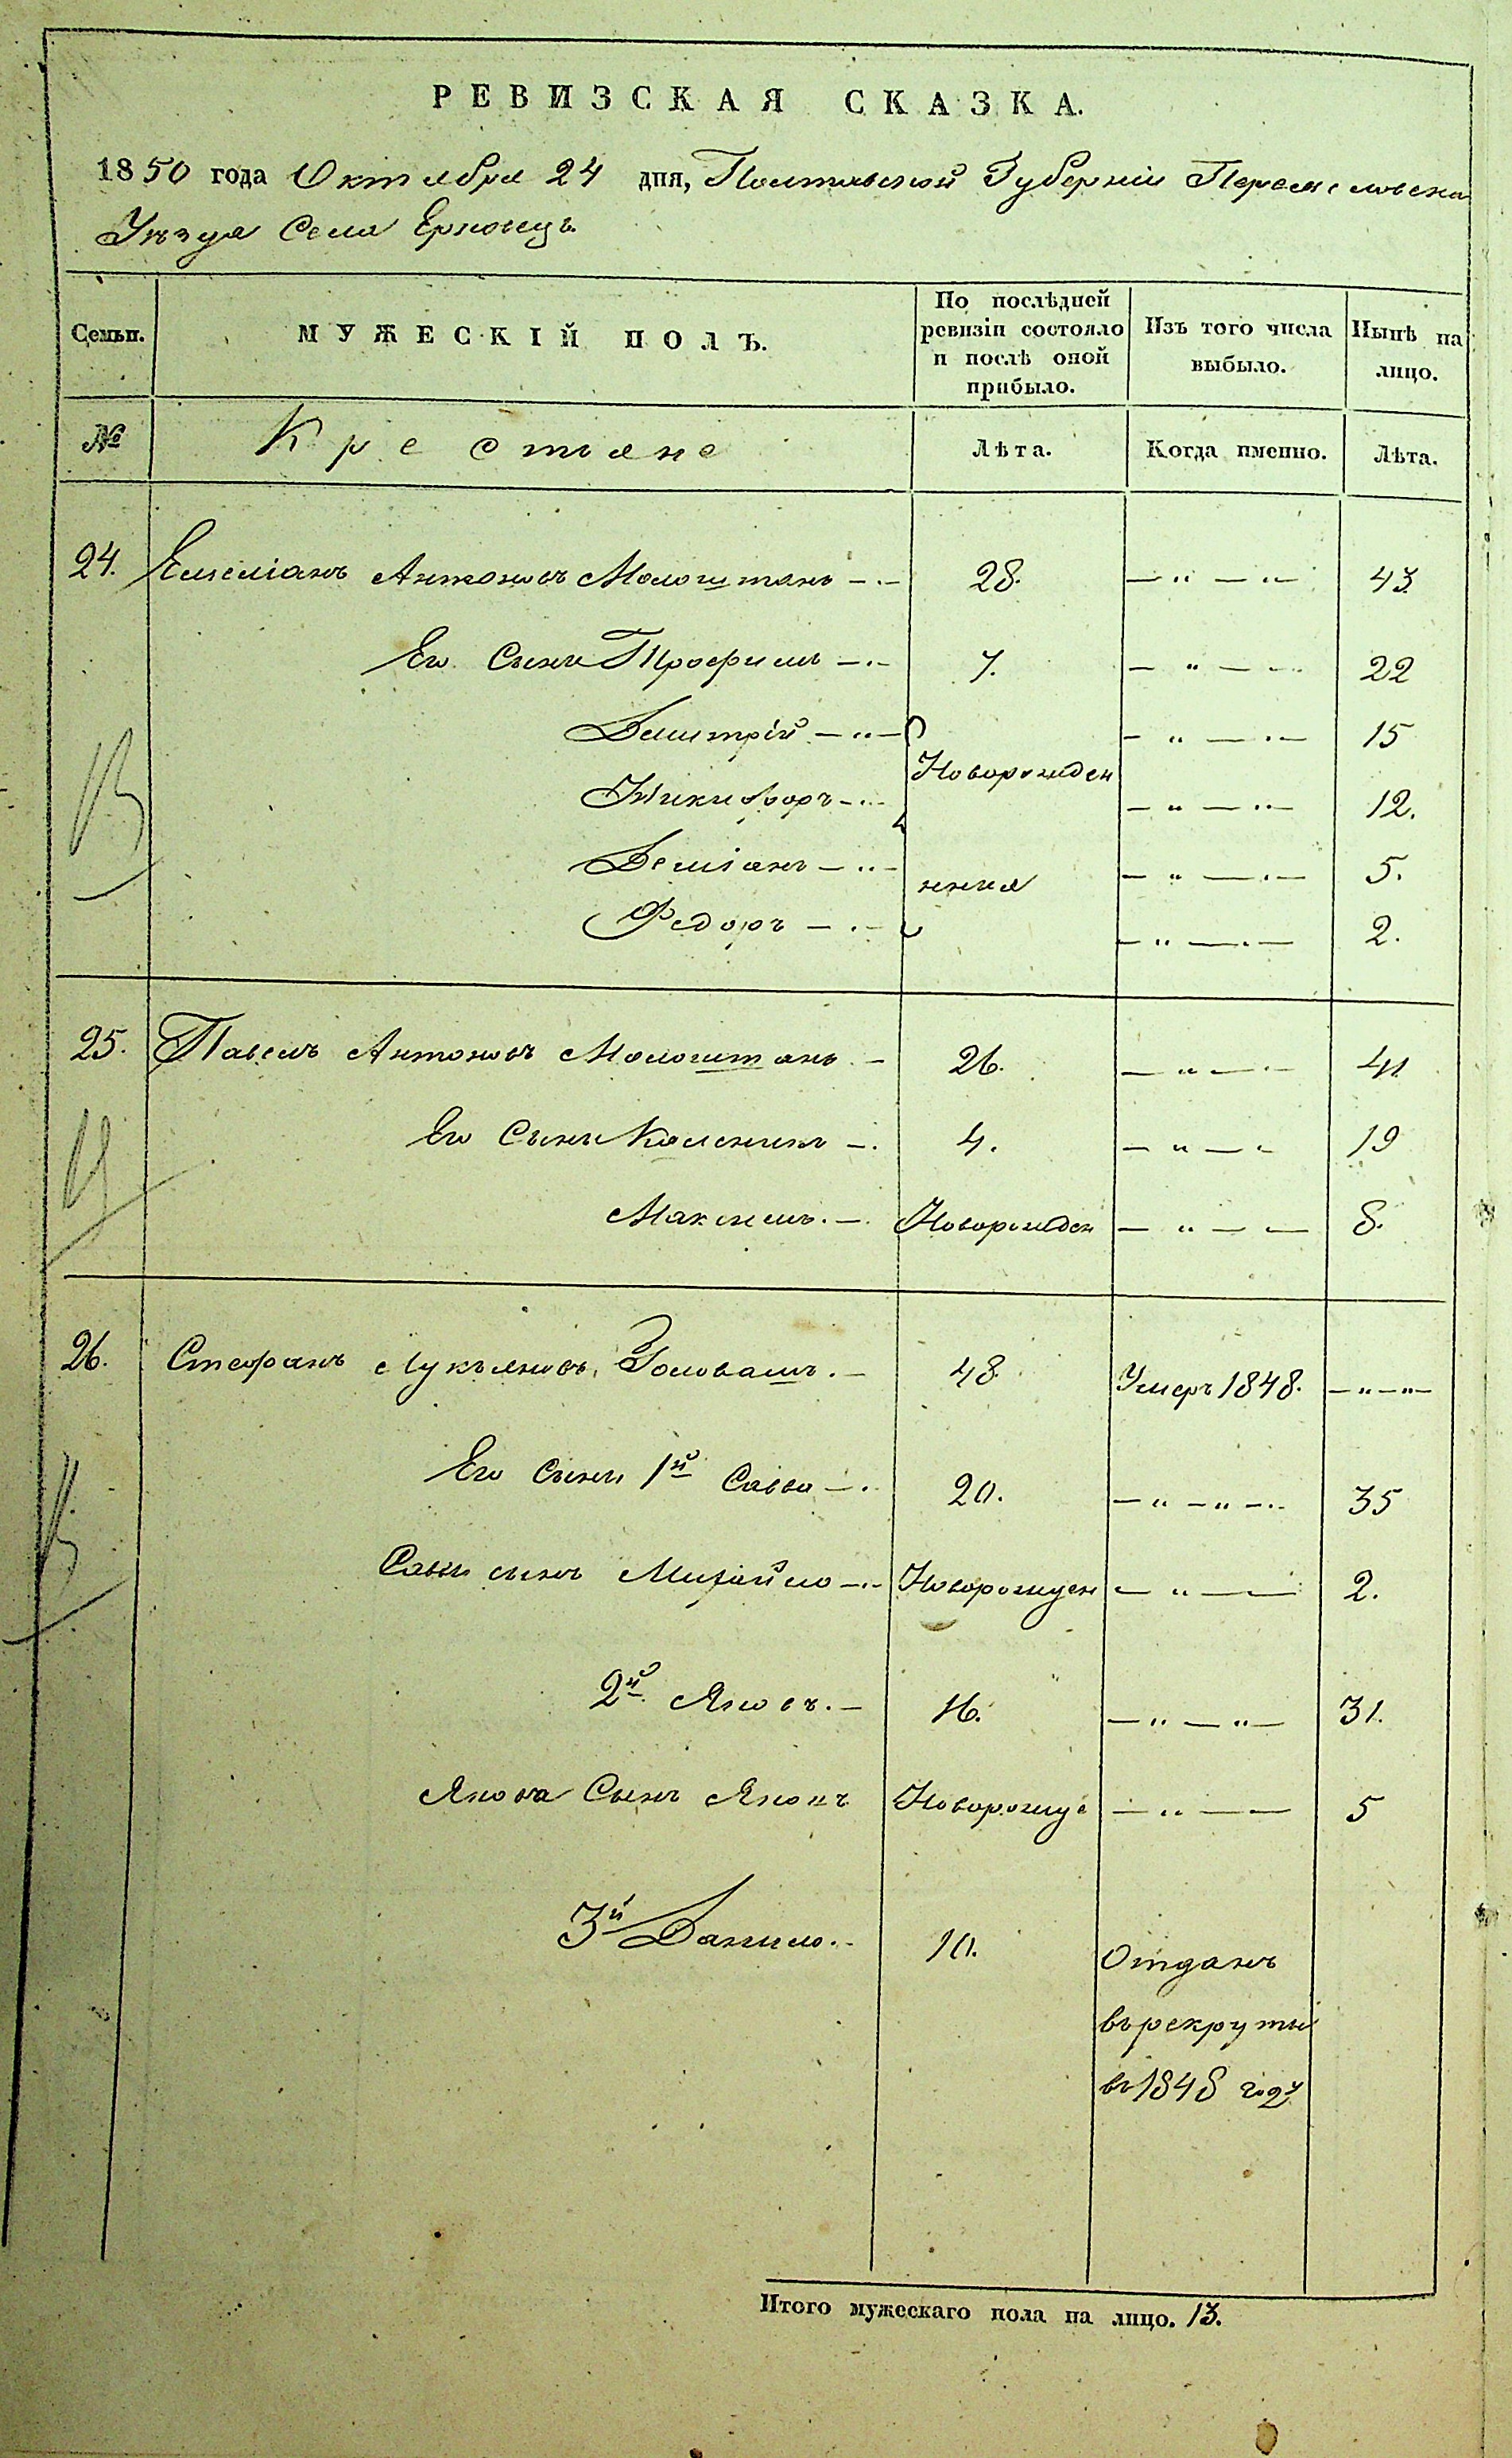 РЕВИЗСКАЯ СКАЗКА.
1850 года Октября 24 дня, Полтавской Губерніи Переяславскаго
Уѣзда Села Ерковецъ
Семьи.
МУЖЕСКІЙ ПОЛЪ.
По послѣдней ревизіи состояло и послѣ оной прибыло.
Изъ того числа выбыло.
Нынѣ на лицо.
№
Крестьяне
Лѣта.
Когда именно.
Лѣта.
24. Емеліанъ Антоновъ 28. 43.
Его Сынъ Трофимъ 7. 22
Дмитрій 15
Новорожден
Никифоръ 12.
Деміанъ 5.
нныя
Федоръ 2.
25. Павелъ Антоновъ 26. 41.
Его Сынъ Каленикъ 4. 19
Максимъ. Новорожден 8.
26. Стефанъ Лукъяновъ Головашъ. 48. Умеръ 1848.
Его Сынъ 1й Савва 20. 35
Савы сынъ Михайло Новорожден 2.
2й Яковъ. 16. 31.
Якова Сынъ Новорожде 5
3й Данило. 10. Отданъ
въ рекруты
въ 1848 году
Итого мужескаго пола на лицо. 13.